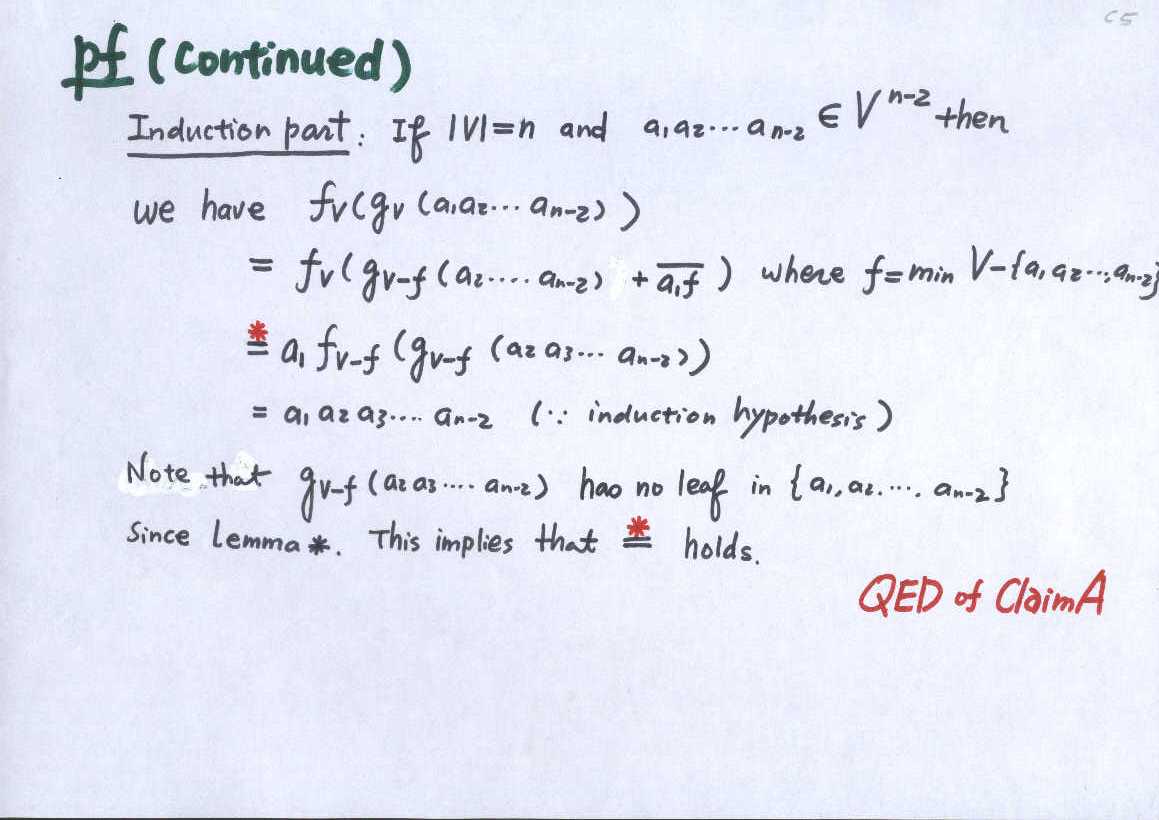 C5
pf (Continued)
Induction part: If |V|=n and a₁a₂⋯aₙ₋₂ ∈ Vⁿ⁻² then
we have fv(gv(a₁a₂⋯aₙ₋₂))
= fv(gv-f(a₂⋯⋅aₙ₋₂) + a̅₁̅f̅) where f=min V-{a₁a₂⋯,aₙ₋₂}
*= a₁fv-f(gv-f(a₂a₃⋯aₙ₋₂))
= a₁a₂a₃⋯⋅aₙ₋₂ (∵ induction hypothesis)
Note that gv-f(a₂a₃⋯⋅aₙ₋₂) has no leaf in {a₁,a₂.⋯.aₙ₋₂}
Since lemma*. This implies that *= holds.
QED of ClaimA